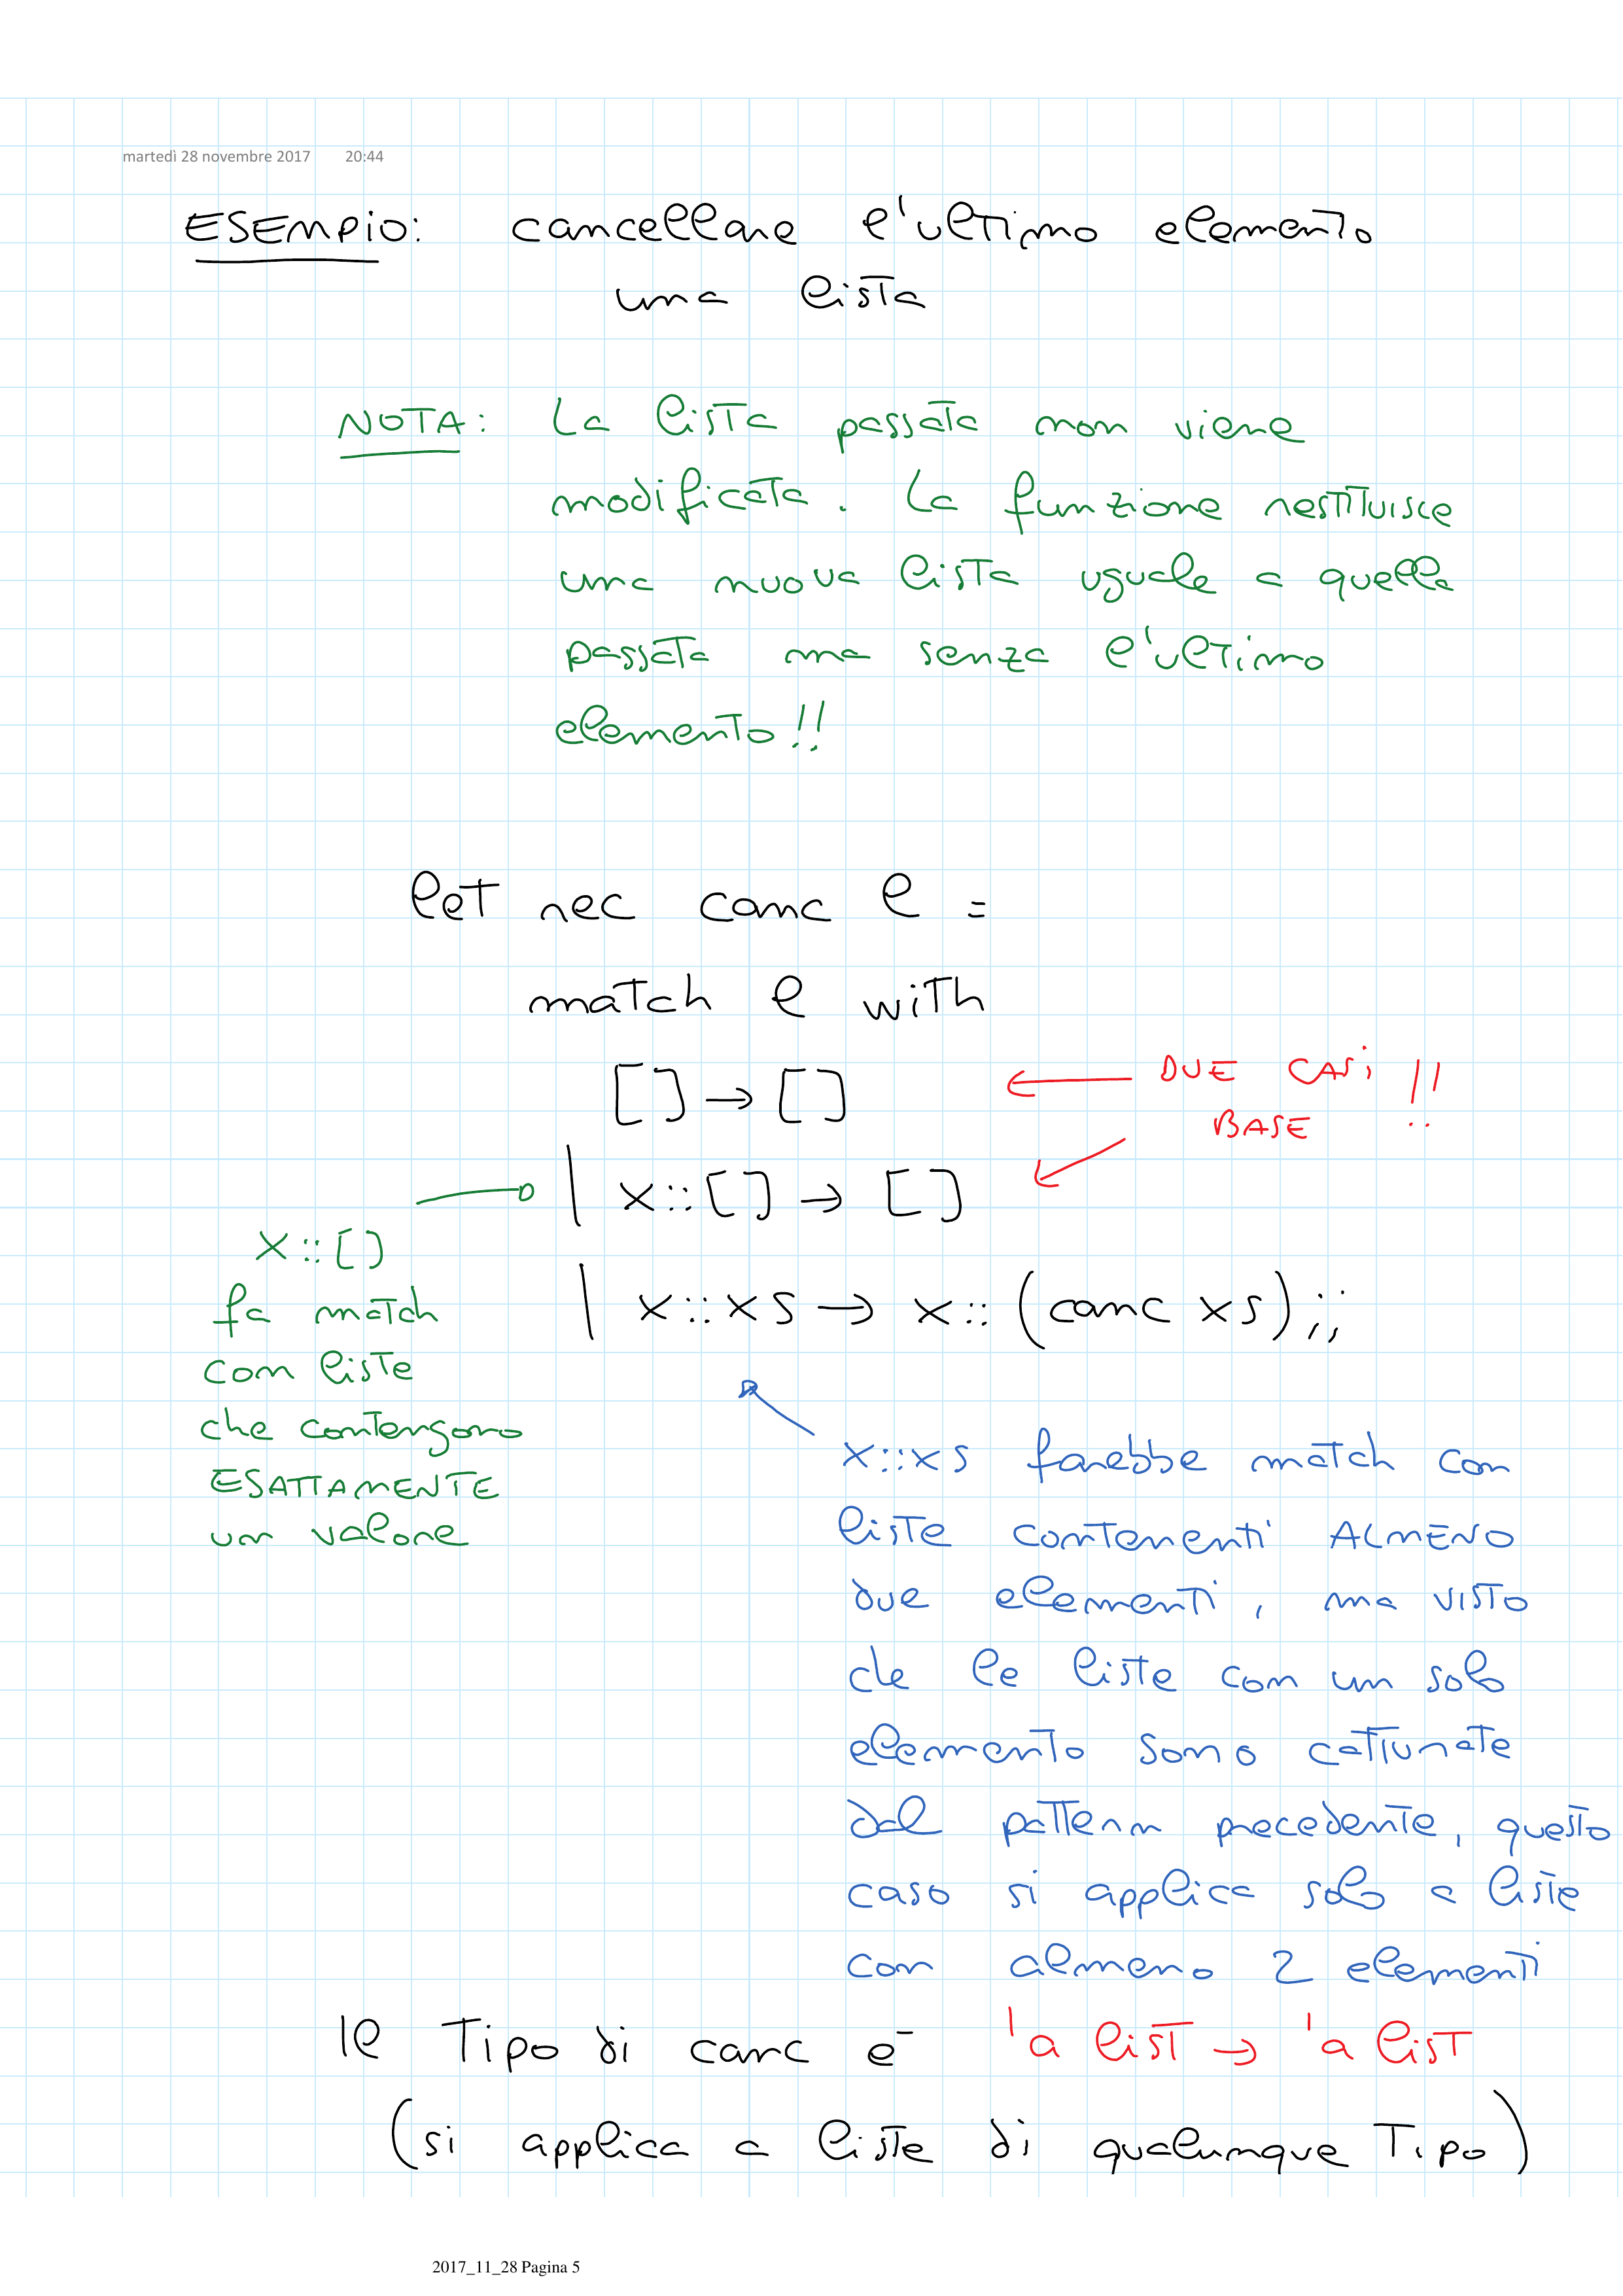 martedì 28 novembre 2017 20:44
ESEMPIO: cancellare l'ultimo elemento
una lista
NOTA: La lista passata non viene
modificata. La funzione restituisce
una nuova lista uguale a quella
passata ma senza l'ultimo
elemento!!
let rec canc l =
match l with
[] → [] ← DUE CASI !!
BASE
| x::[] → []
x::[]
fa match
con liste
che contengono
ESATTAMENTE
un valore
| x::xs → x::(canc xs);;
x::xs farebbe match con
liste contenenti ALMENO
due elementi, ma visto
che le liste con un solo
elemento sono catturate
dal pattern precedente, questo
caso si applica solo a liste
con almeno 2 elementi
Il Tipo di canc è 'a list → 'a list
(si applica a liste di qualunque Tipo)
2017_11_28 Pagina 5